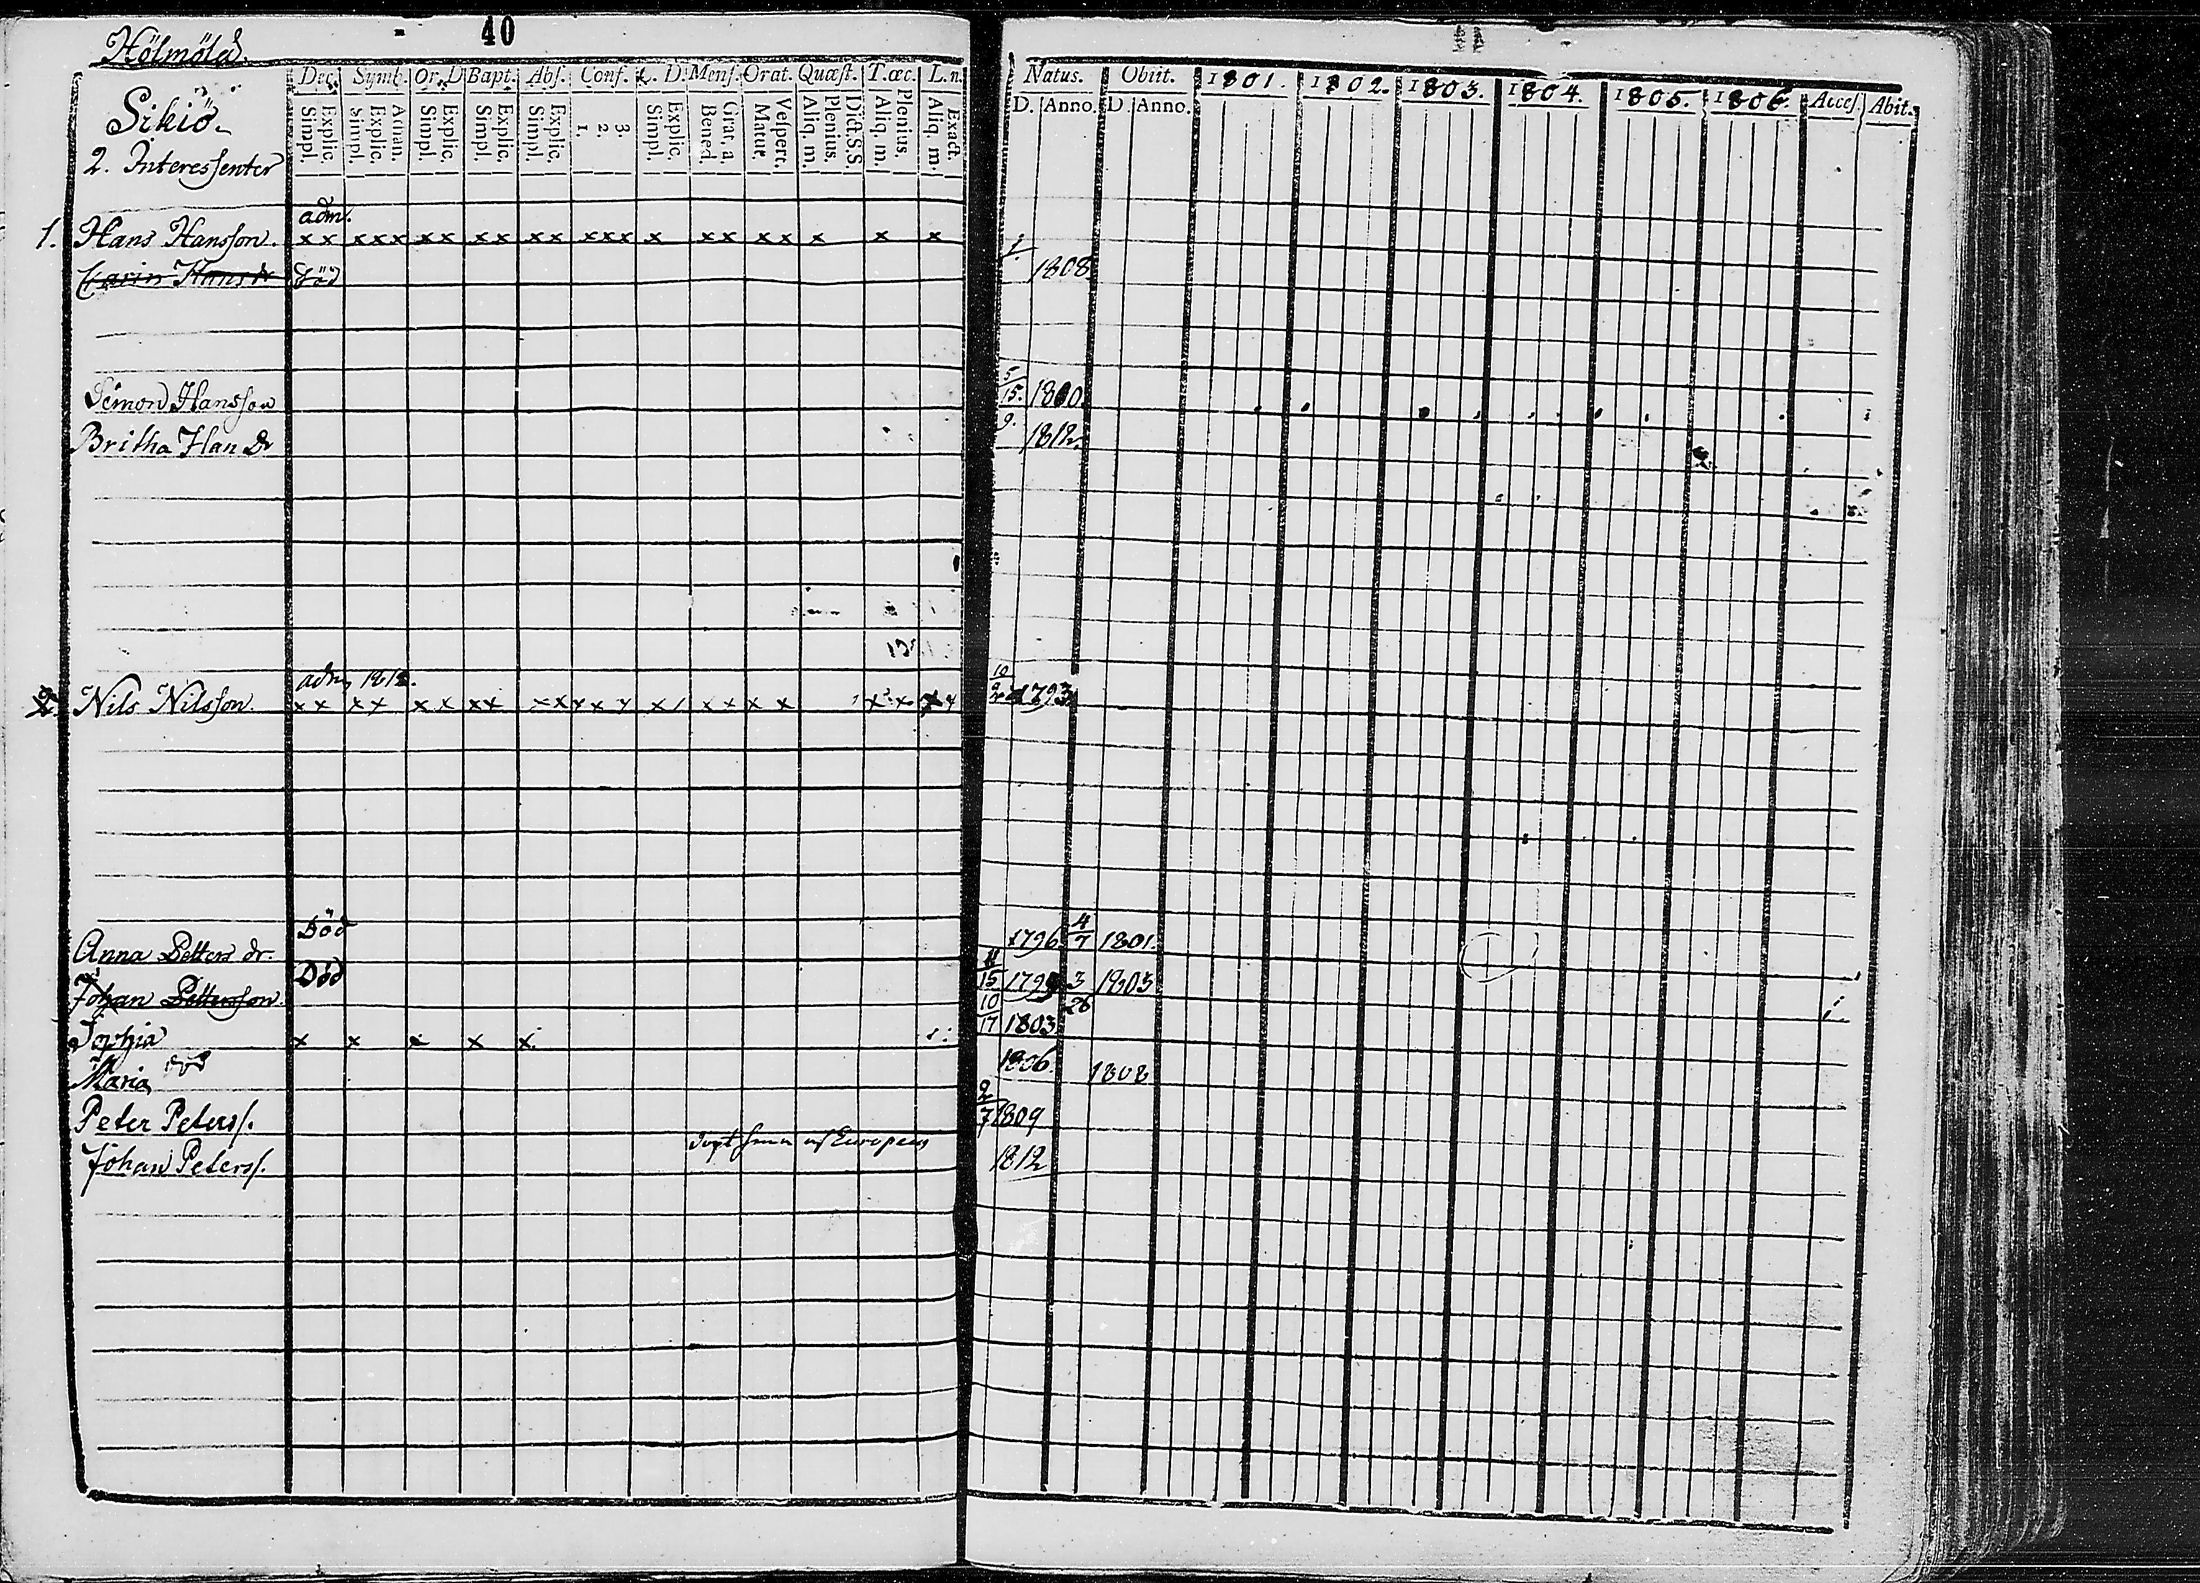 40
Hölmölä.
Sikiö.
2. Interessenter
Dec. Symb. Or. D. Bapt. Abs. Conf. C. D. Mens. Orat. Quæst. T. œc. L. n.
Simpl. Explic. Simpl. Explic. Athan. Simpl. Explic. Simpl. Explic. Simpl. Explic. 1. 2. 3. Simpl. Explic. Bened. Grat. a. Matut. Vespert. Aliq. m. Plenius. Dict. S.S. Aliq. m. Plenius. Aliq. m. Exact.
Natus. Obiit. 1801. 1802. 1803. 1804. 1805. 1806. Acces. Abit.
D. Anno. D. Anno.
adm.
1. Hans Hansson. x x x x x x x x x x x x x x x x x x x x x x
Carin Hans dr död 1808
Simon Hansson 5/15. 1800.
Britha Han dr 9. 1812.
adm 1812.
2 Nils Nilsson. x x x x x x x x x x x x x x x x x x 10/2 1793
Anna Petters dr. Död 1796 4/7 1801.
Johan Pettersson. Död 11/15 1799 3/26 1803
Sophia x x x x x 10/17 1803
Maria död 1806. 1808
Peter Peters. 2/7 1809
Johan Peters. 1812